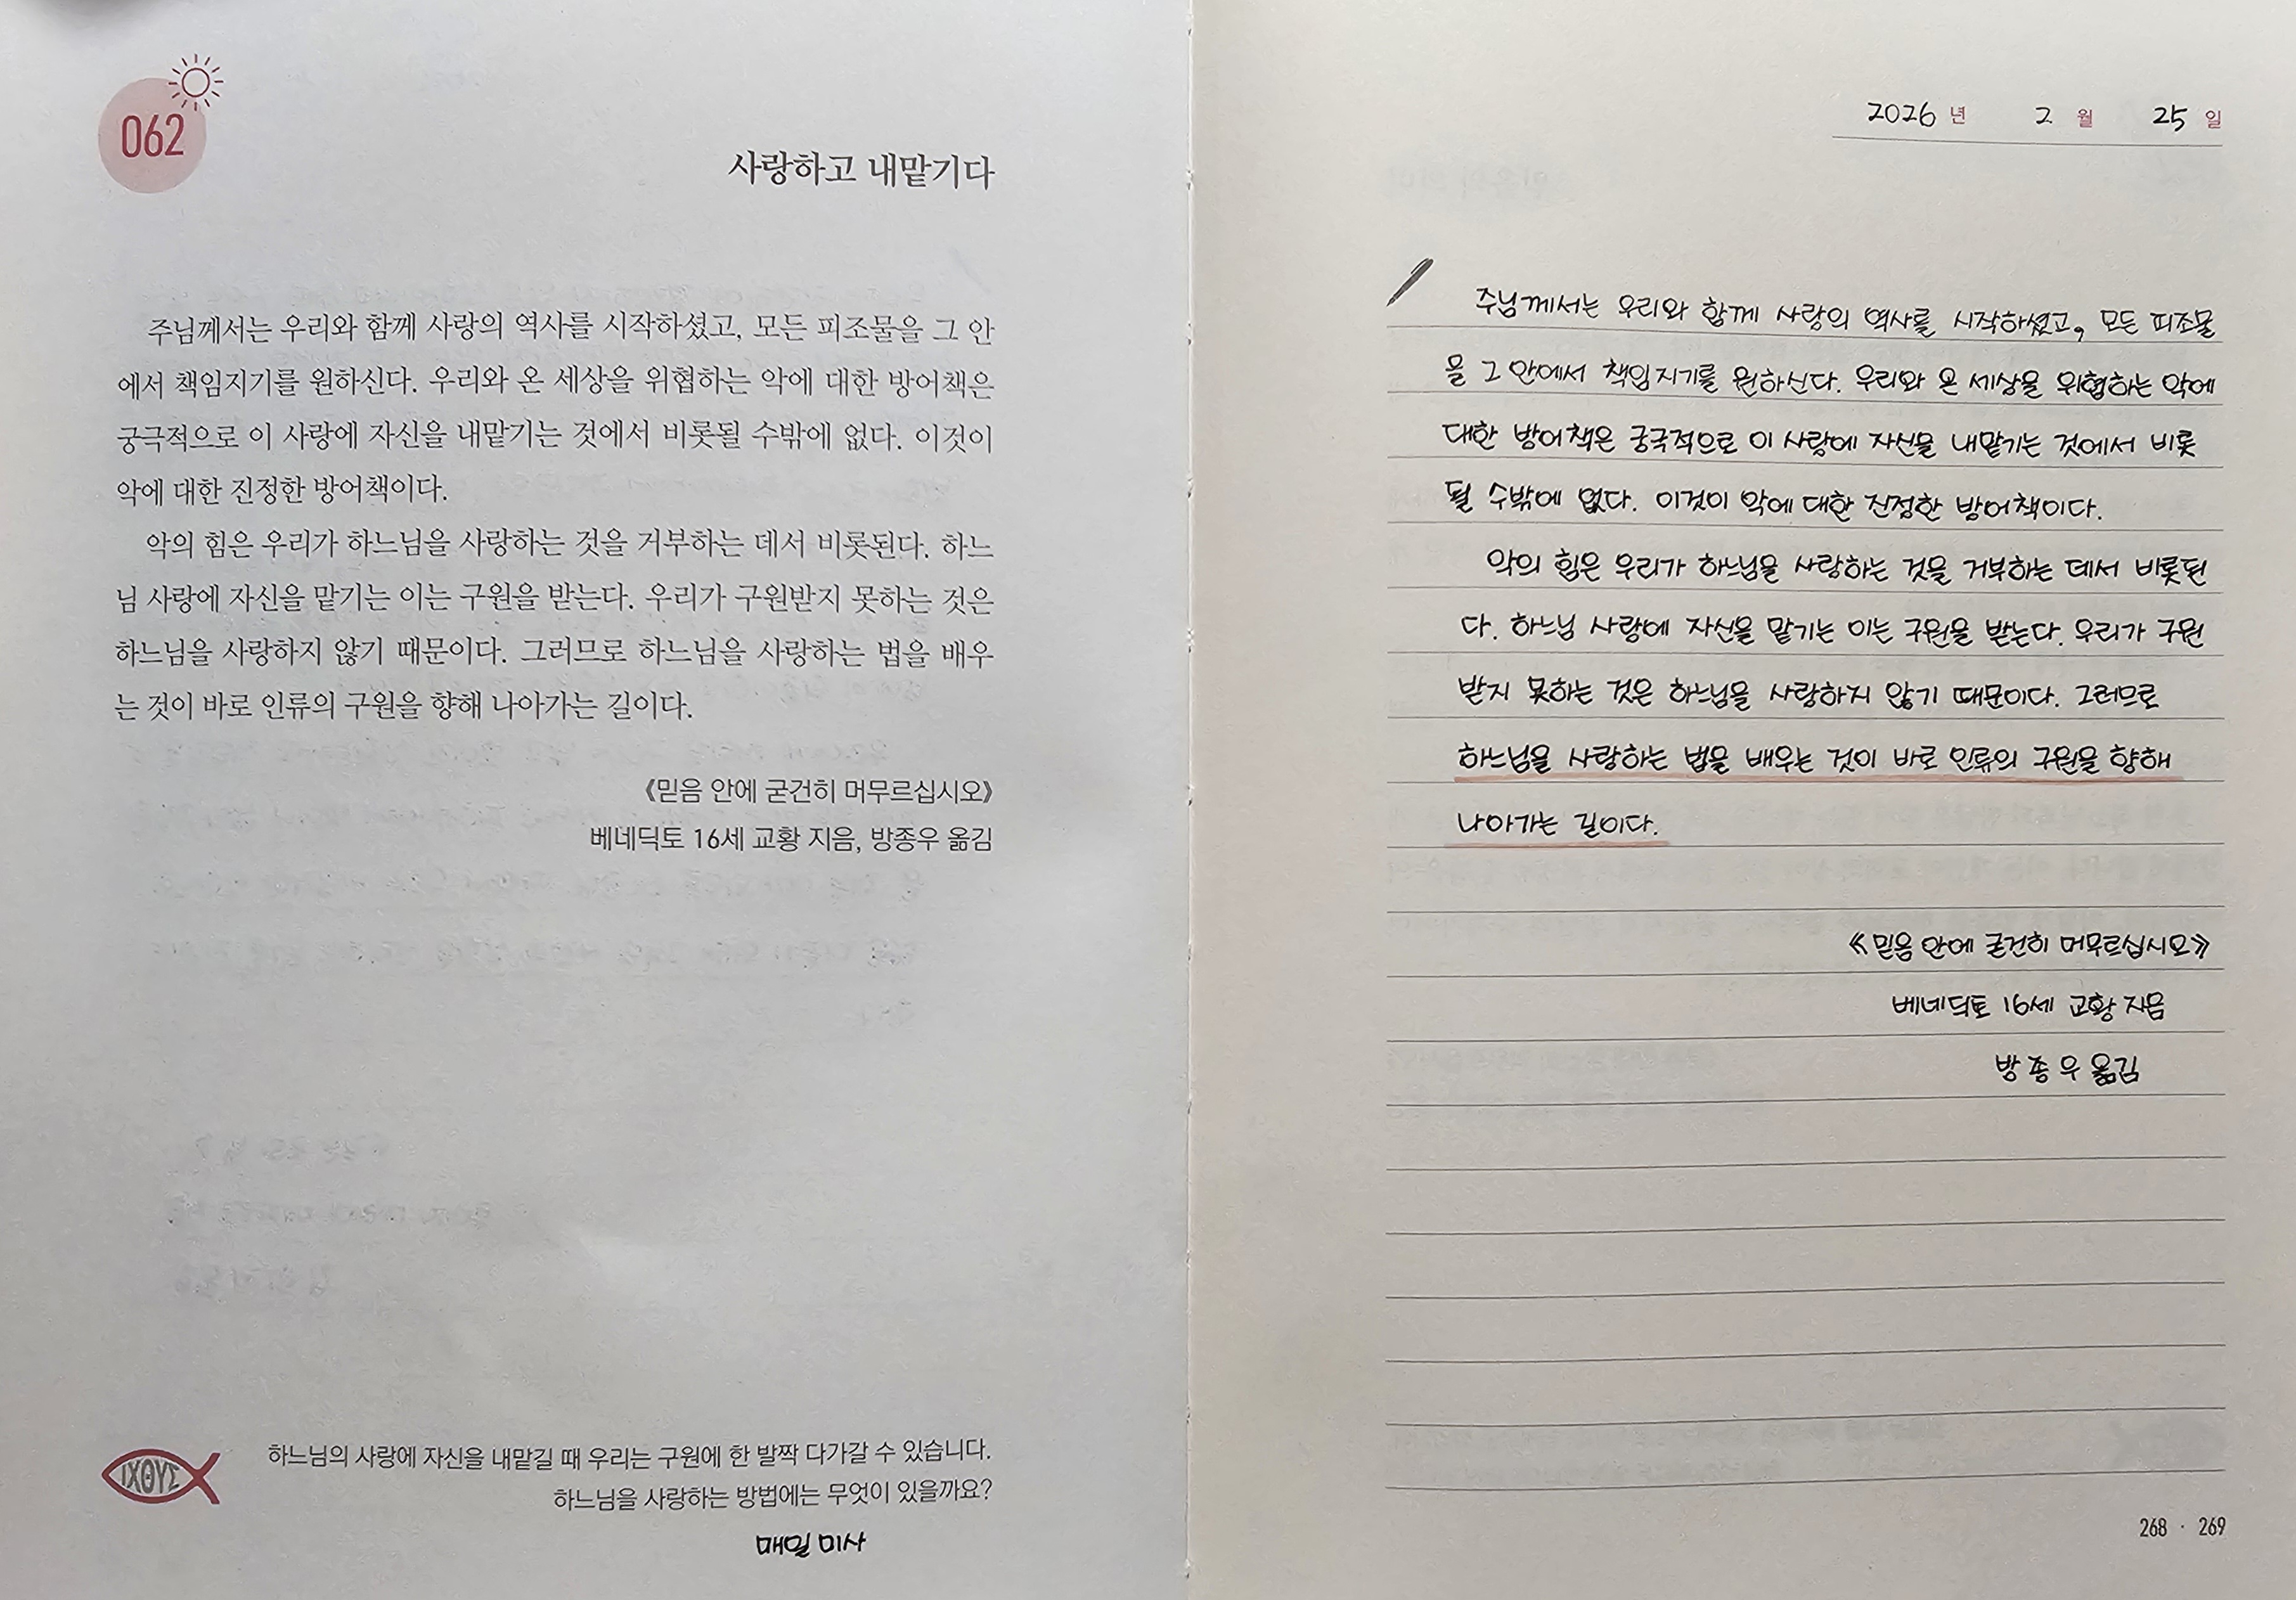 062
사랑하고 내맡기다
주님께서는 우리와 함께 사랑의 역사를 시작하셨고, 모든 피조물을 그 안
에서 책임지기를 원하신다. 우리와 온 세상을 위협하는 악에 대한 방어책은
궁극적으로 이 사랑에 자신을 내맡기는 것에서 비롯될 수밖에 없다. 이것이
악에 대한 진정한 방어책이다.
악의 힘은 우리가 하느님을 사랑하는 것을 거부하는 데서 비롯된다. 하느
님 사랑에 자신을 맡기는 이는 구원을 받는다. 우리가 구원받지 못하는 것은
하느님을 사랑하지 않기 때문이다. 그러므로 하느님을 사랑하는 법을 배우
는 것이 바로 인류의 구원을 향해 나아가는 길이다.
《믿음 안에 굳건히 머무르십시오》
베네딕토 16세 교황 지음, 방종우 옮김
ΙΧΘΥΣ
하느님의 사랑에 자신을 내맡길 때 우리는 구원에 한 발짝 다가갈 수 있습니다.
하느님을 사랑하는 방법에는 무엇이 있을까요?
매일 미사
2026 년 2 월 25 일
주님께서는 우리와 함께 사랑의 역사를 시작하셨고, 모든 피조물
을 그 안에서 책임지기를 원하신다. 우리와 온 세상을 위협하는 악에
대한 방어책은 궁극적으로 이 사랑에 자신을 내맡기는 것에서 비롯
될 수밖에 없다. 이것이 악에 대한 진정한 방어책이다.
악의 힘은 우리가 하느님을 사랑하는 것을 거부하는 데서 비롯된
다. 하느님 사랑에 자신을 맡기는 이는 구원을 받는다. 우리가 구원
받지 못하는 것은 하느님을 사랑하지 않기 때문이다. 그러므로
하느님을 사랑하는 법을 배우는 것이 바로 인류의 구원을 향해
나아가는 길이다.
《믿음 안에 굳건히 머무르십시오》
베네딕토 16세 교황 지음
방종우 옮김
268 · 269